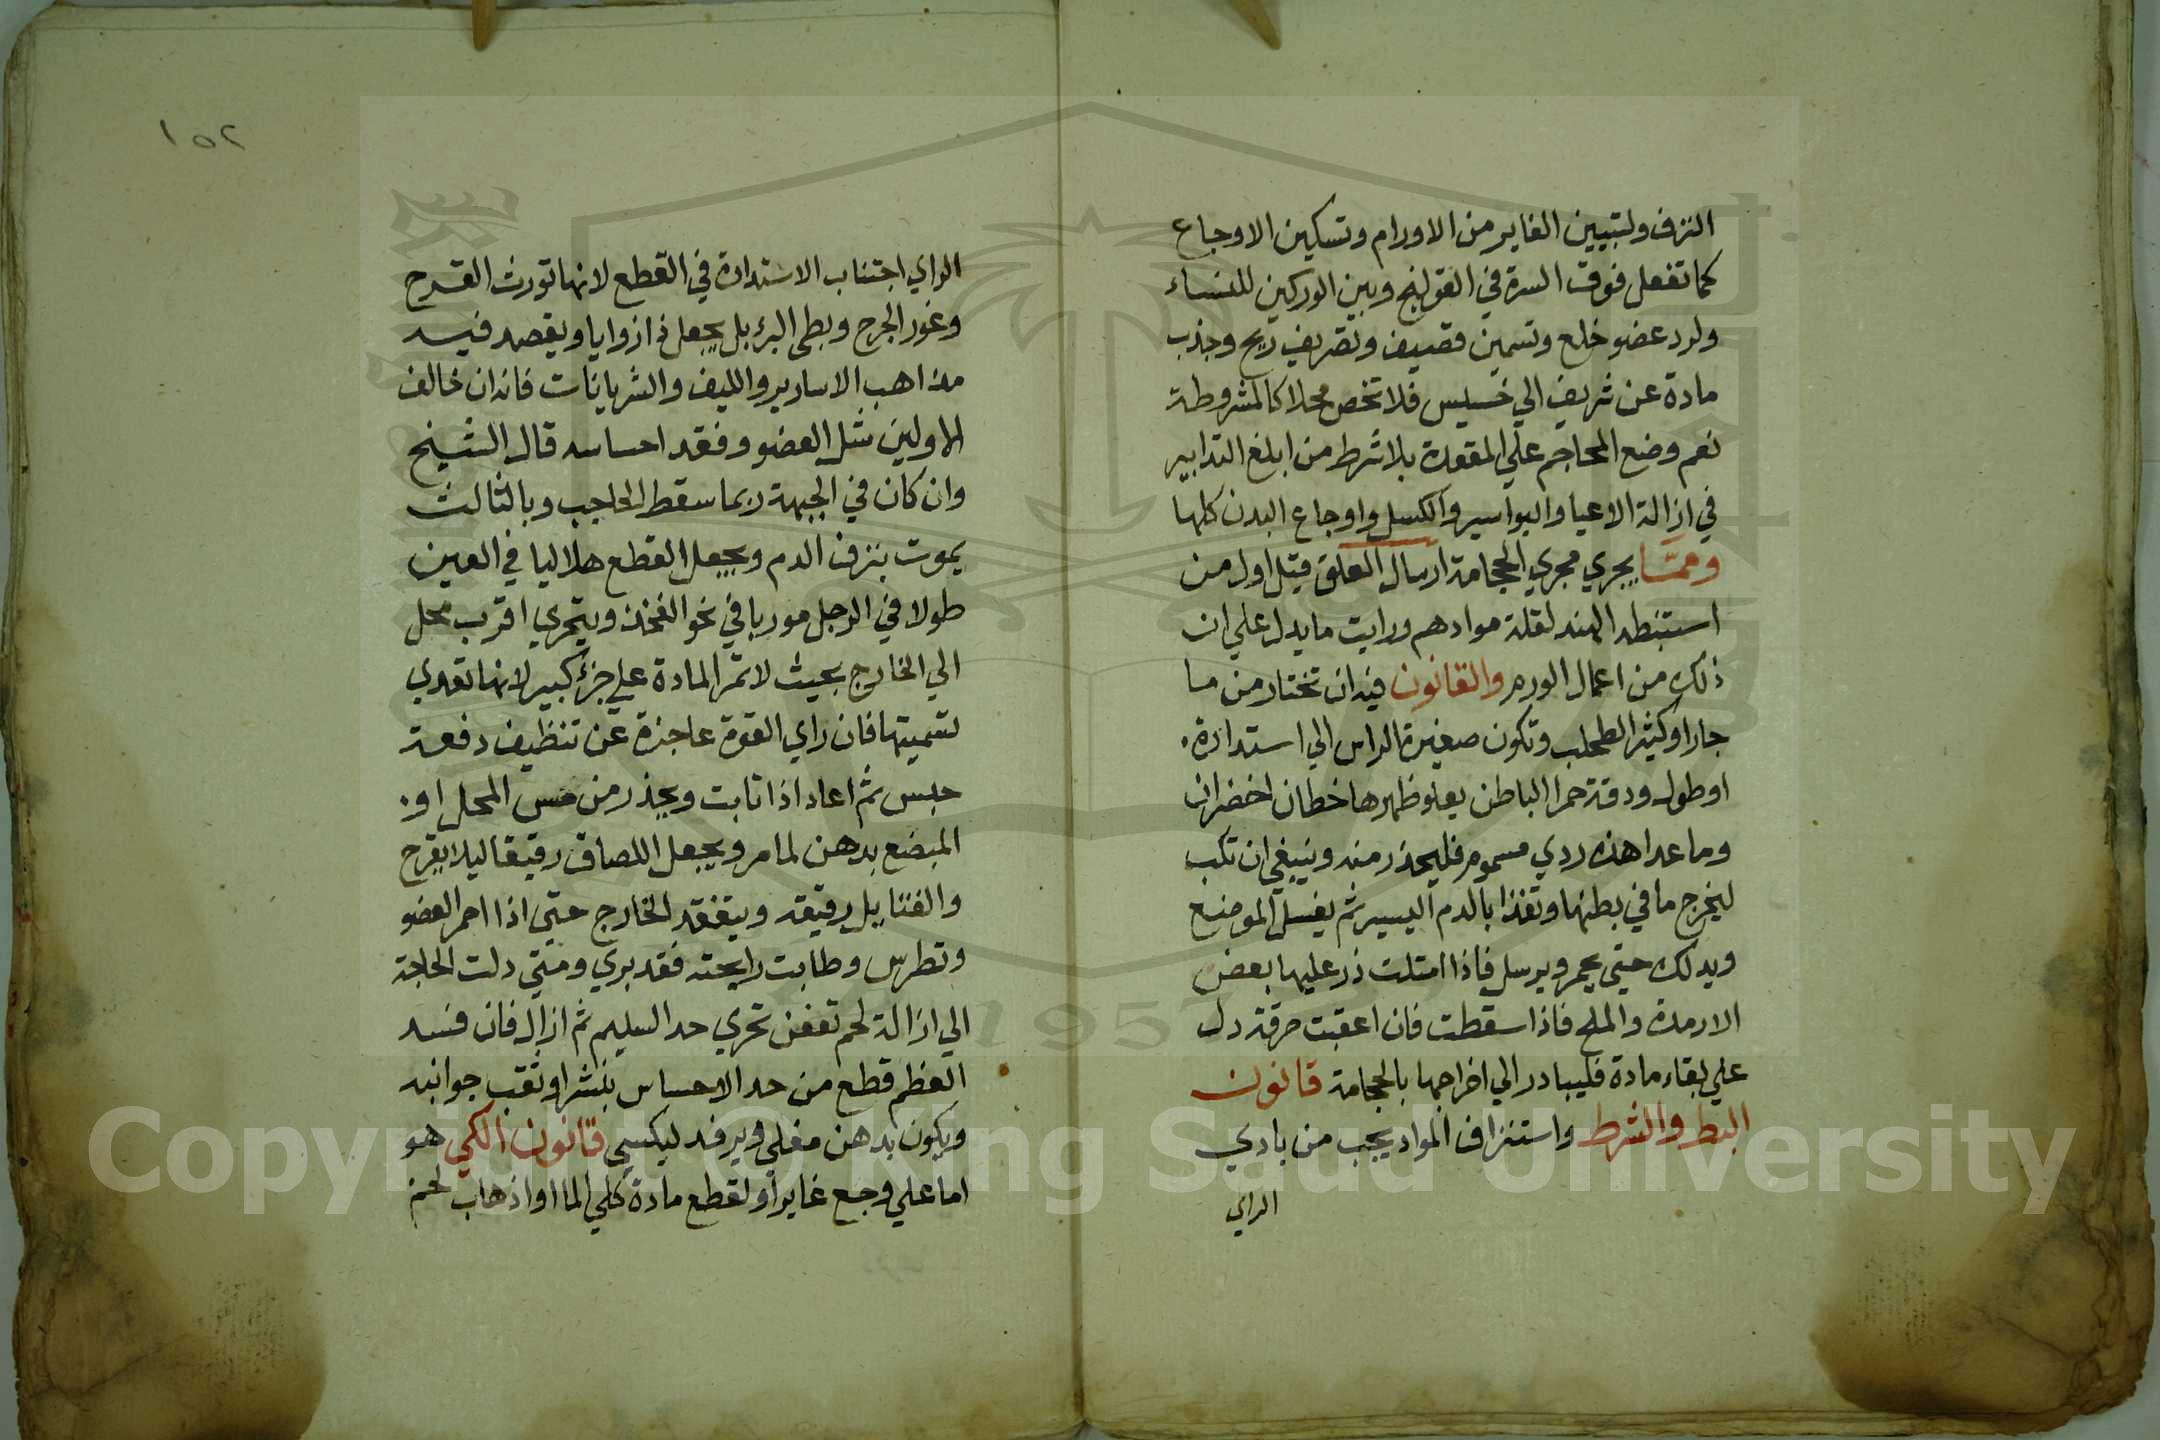 النزف ولتبيين الغاير من الاورام وتسكين الاوجاع
كما تفعل فوق السرة في القولنج وبين الوركين للنساء
ولرد عضو خلع وتسمين قصيف وتصريف ريح وجذب
مادة عن شريف الي خسيس فلا تخص محلا كالمشروطة
نعم وضع المحاجم علي المقعدة بلا شرط من ابلغ التدابير
في ازالة الاعيا والبواسير والكسل واوجاع البدن كلها
وممّا يجري مجري الحجامة ارسال العلق قيل اول من
استنبطه الهند لقلة موادهم ورايت ما يدل علي ان
ذلك من اعمال الورم والقانون فيه ان تختار من ما
جار او كثير الطحلب وتكون صغيرة الراس الي استدارة
او طول ودقة حمرا الباطن يعلو ظهرها خطان اخضران
وما عدا هذه ردي مسموم فليحذر منه وينبغي ان تكب
ليخرج ما في بطنها وتغذا بالدم اليسير ثم يغسل الموضع
ويدلك حتي يحمر ويرسل فاذا امتلت ذر عليها بعض
الارمدة والملح فاذا سقطت فان اعقبت حرقة دل
علي بقاء مادة فليبادر الي اخراجها بالحجامة قانون
البط والشرط واستنزاف المواد يجب من بادي
الراي
١٥٢
الراي اجتناب الاستدارة في القطع لانها تورث القرح
وغور الجرح وبطي البرء بل يجعل ذا زوايا ويقصد فيه
مذاهب الاسارير والليف والشريانات فانه ان خالف
الاولين شل العضو وفقد احساسه قال الشيخ
وان كان في الجبهة ربما سقط الحاجب وبالثالث
يموت بنزف الدم ويجعل القطع هلاليا في العين
طولا في الرجل موربا في نحو الفخذ ويتحري اقرب محل
الي الخارج بحيث لا تمر المادة علي جزء كبير لانها تعدي
لسميتها فان راي القوة عاجزة عن تنظيف دفعة
حبس ثم اعاد اذا تابت ويحذر من مس المحل او
المبضع بدهن لما مر ويجعل اللصاق رقيقا ليلا يقرح
والفتايل رقيقه ويتفقد الخارج حتي اذا احمر العضو
وتطرس وطابت رايحته فقد بري ومتي دلت الحاجة
الي ازالة لحم تعفن تحري حد السليم ثم ازال فان فسد
العظم قطع من حد الاحساس بنشر او ثقب جوانبه
ويكون بدهن مغلي ويرفد ليكسي قانون الكي هو
اما علي وجع غاير او لقطع مادة كلي الما او اذهاب لحم